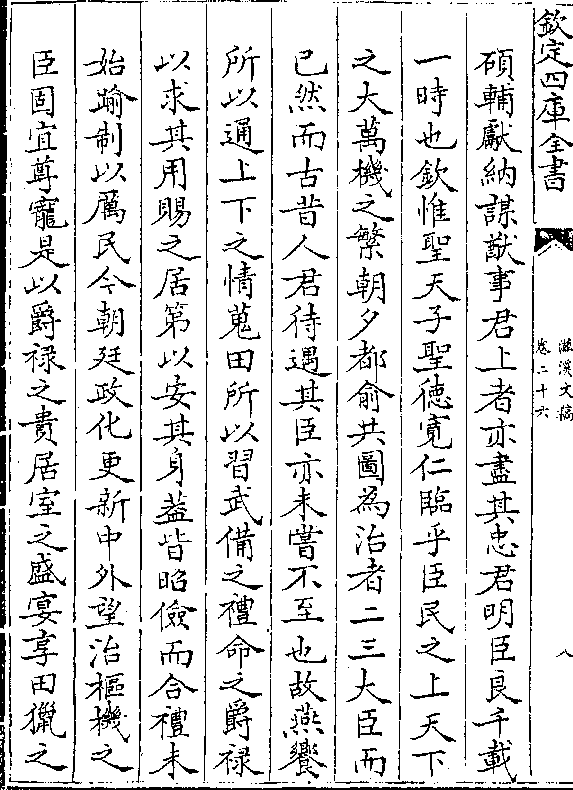 欽定四庫全書
滋溪文稿
卷二十六
八
碩輔獻納謀猷事君上者亦盡其忠君明臣良千載
一時也欽惟聖天子聖徳寛仁臨乎臣民之上天下
之大萬機之繁朝夕都俞共圖為治者二三大臣而
已然而古昔人君待遇其臣亦未嘗不至也故燕饗
所以通上下之情蒐田所以習武備之禮命之爵禄
以求其用賜之居第以安其身葢皆昭儉而合禮未
始踰制以厲民今朝廷政化更新中外望治樞機之
臣固宜尊寵是以爵禄之貴居室之盛宴享田獵之